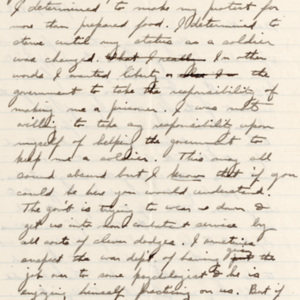 I determined to make my protest for
more than prepared food. I determined to
starve until my status as a soldier
was changed. What I really In other
words I wanted liberty or the
government to take the responsibility of
making me a prisoner. I was not
willing to take any responsibility upon
myself of helping the government to
keep me a soldier. This may all
sound absurd but I know that if you
could be here you would understand.
The gov't is trying to wear us down &
get us into non combatant service by
all sorts of clever dodges. I sometimes
suspect the war dept. of having given the
job over to some psychologist & he is
enjoying himself practicing on us. But if